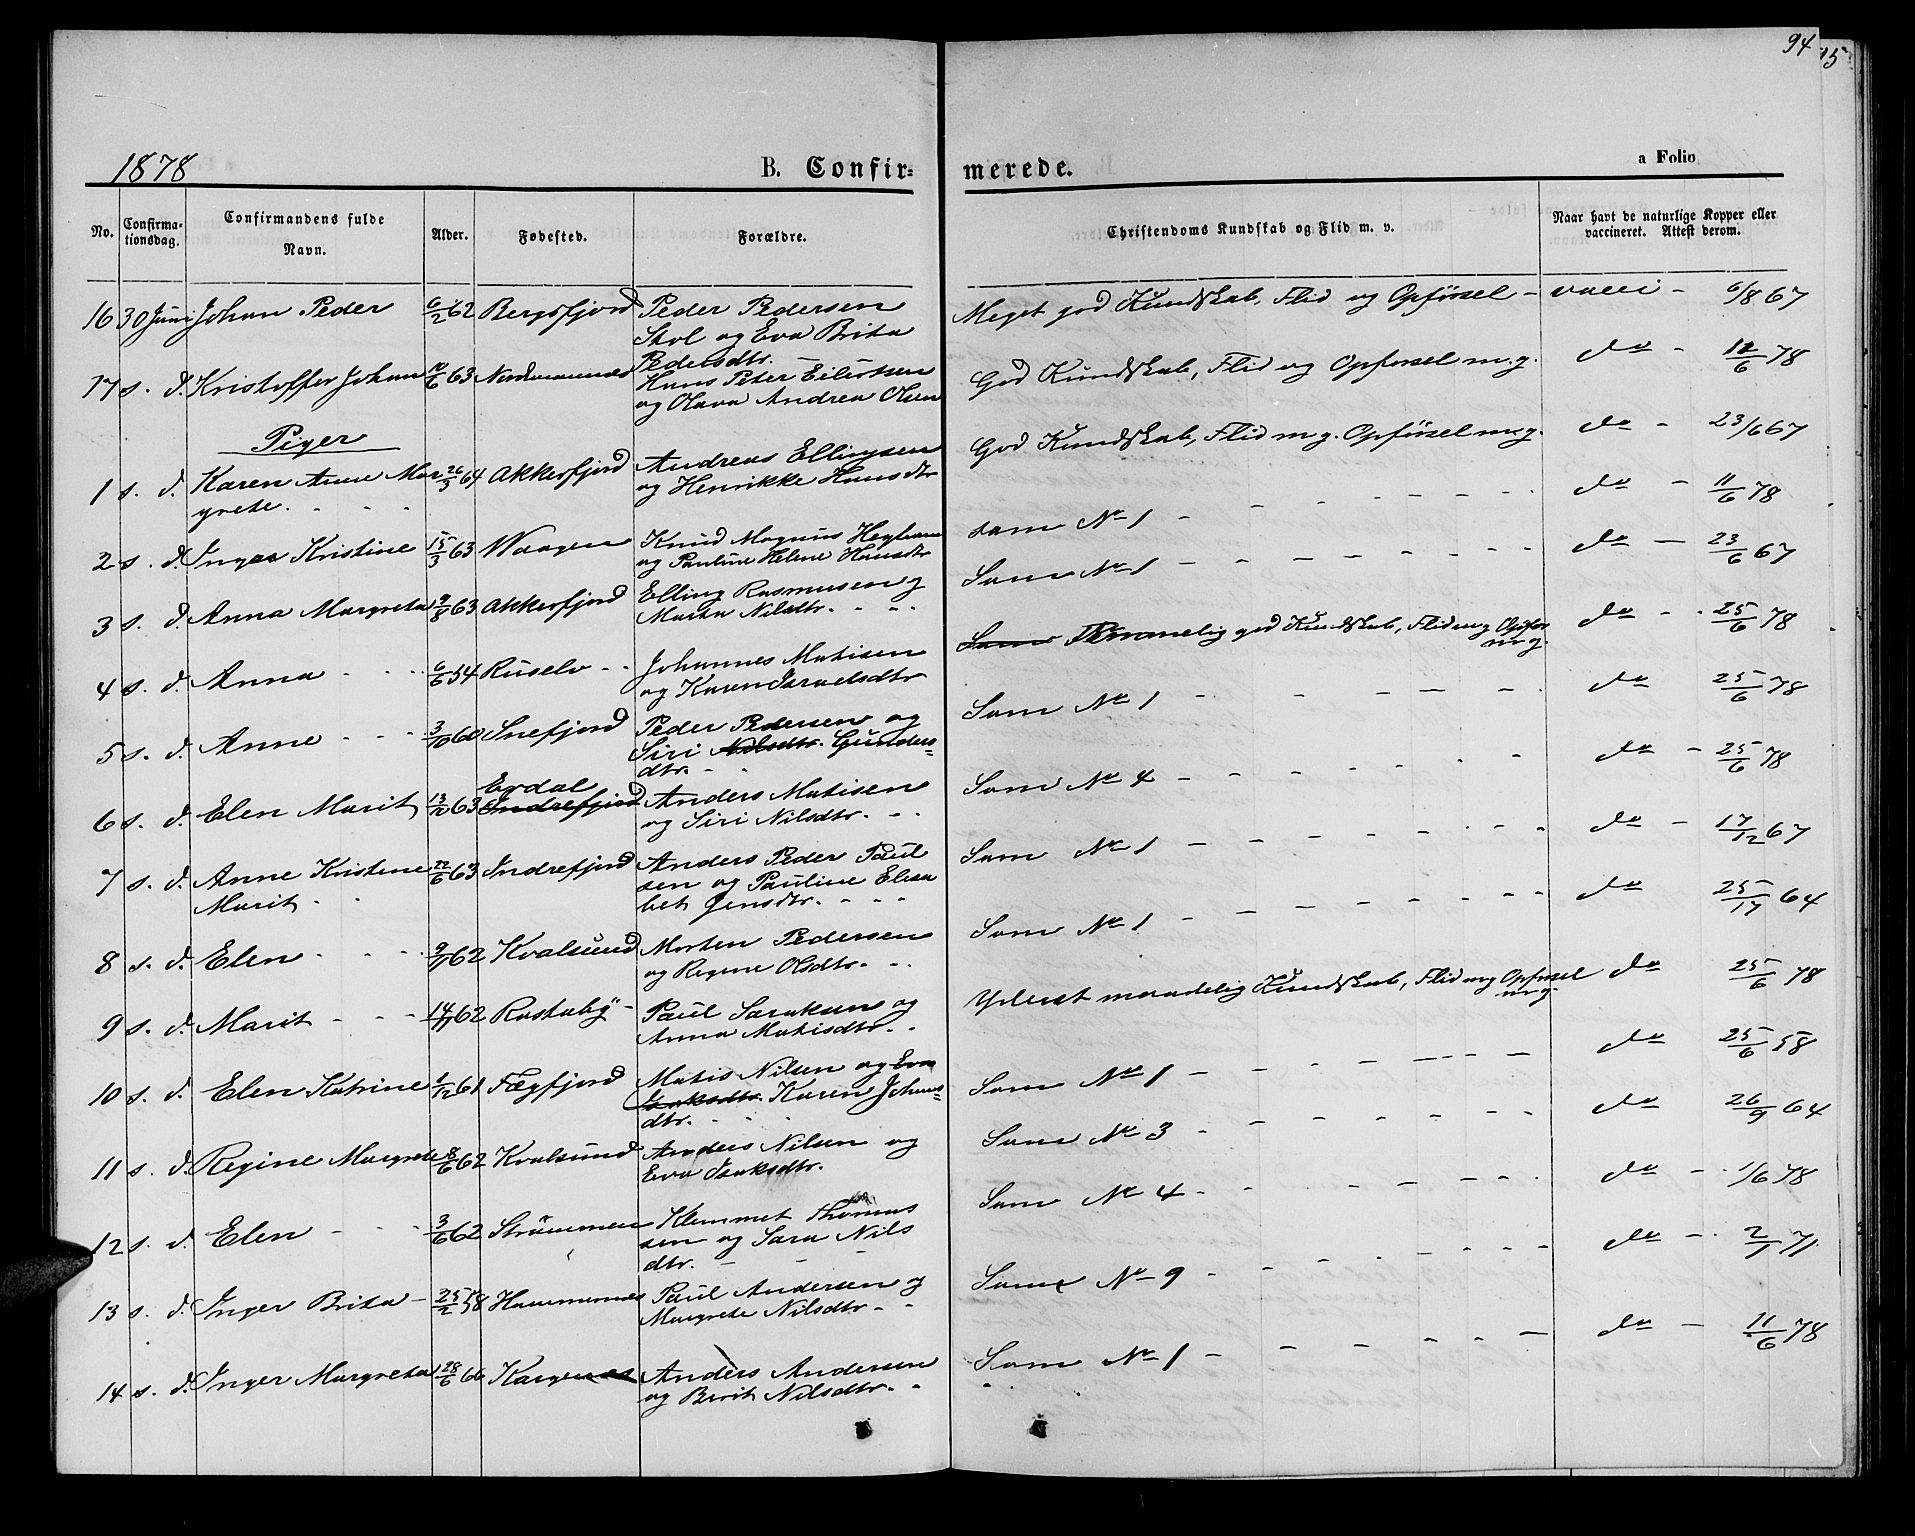 94
15
1878
B. Confir=
merede.
a Folio
No.
Confirma-
tionsdag.
Confirmandens fulde
Navn.
Alder.
Fødested.
Forældre.
Christendoms Kundskab og Flid m. v.
Naar havt de naturlige Kopper eller
vaccineret. Attest derom.
16 30 Juni Johan Peder 6/2 62 Bergsfjord Peder Pedersen Meget god Kundskab, Flid og Opførsel - vacci - 6/8 67
Skol og Eva Brita
Pedersdtr.
17 s. d. Kristoffer Johan 10/6 63 Nordmannes Hans Peter Eilertsen God Kundskab, Flid og Opførsel m.g. do - 12/6 78
og Olava Andrea Olsen
Piger
1 s. d. Karen Anne Mar 26/3 64 Akkerfjord Andreas Ellingsen God Kundskab, Flid m g. Opførsel m.g. do - 23/6 67
grete. og Henrikke Hansdtr
2 s. d. Inger Kristine 15/3 63 Vaagen Knud Magnus Heglum som No 1 - do - 11/6 78
og Pauline Helene Hansdtr
3 s. d. Anna Margreta 9/8 63 Akkerfjord Elling Rasmusen og Som No 1 - do - 23/6 67
Marta Nilsdtr.
4 s. d. Anna 6/6 54 Russelv Johannes Matisen Som Temmelig god Kundskab, Flid mg Opfør do - 25/6 78
og Karen Israelsdtr m.g.
5 s. d. Anne 3/10 60 Snefjord Peder Pedersen og Som No 1 - do 25/6 78
Siri Nilsdtr. Gunders=
dtr.
6 s. d. Elen Marit 13/12 63 Erdal Indrefjord Anders Matisen Som No 4 - do - 25/6 78
og Siri Nilsdtr.
7 s. d. Anne Kristine 22/6 63 Indrefjord Anders Peder Paul Som No 1 - do - 17/12 67
Marit sen og Pauline Elisa
bet Jensdtr.
8 s. d. Elen 9/7 62 Kvalsund Morten Pedersen Som No 1 - do 25/17 64
og Regine Olsdtr.
9 s. d. Marit 14/11 62 Rastaby Paul Saraksen og Yderst maadelig Kundskab, Flid mg Opførsel do 25/6 78
Anna Matisdtr. m.g.
10 s. d. Elen Katrine 1/12 61 Fægfjord Matis Nilsen og Eva Som No 1 - do 25/6 58
Isaksdtr. Karen Johans=
dtr.
11 s. d. Regine Margrete 8/6 62 Kvalsund Anders Nilsen og Som No 3 - do 26/9 64
Eva Isaksdtr.
12 s. d. Elen 3/6 62 Strømmen Klemmet Thomas Som No 4 - do - 1/6 78
sen og Sara Nils
dtr.
13 s. d. Inger Brita - 25/2 58 Hammernes Paul Andersen og Som No 9 - do - 2/1 71
Margrete Nilsdtr.
14 s. d. Inger Margreta 28/6 66 Kargenes Anders Andersen Som No 1 - do - 11/6 78
og Berit Nilsdtr.